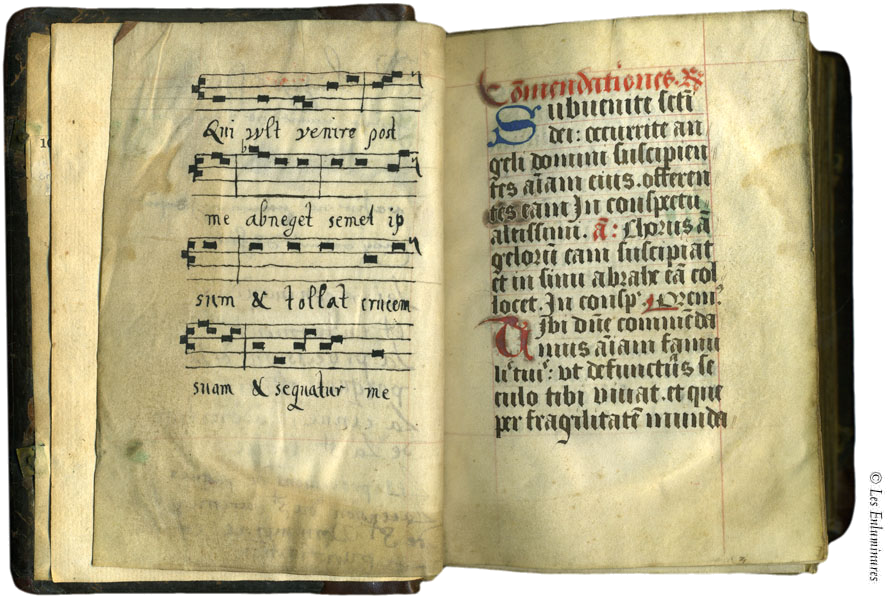 Qui vult venire post
me abneget semet ip
sum & tollat crucem
suam & sequatur me
Cōmendationes. R
Subuenite scti
dei: occurrite an
geli domini suscipien
tes aīam eius. offeren
tes eam In conspectu
altissimi. ā: Chorus ā
gelorū eam suscipiat
et in sinu abrahe eā col
locet. In consp. Orem
Tibi dn̄e commēda
mus aīam famu
li tui: vt defunctus se
culo tibi viuat. et que
per fragilitatē munda
© Les Enluminures